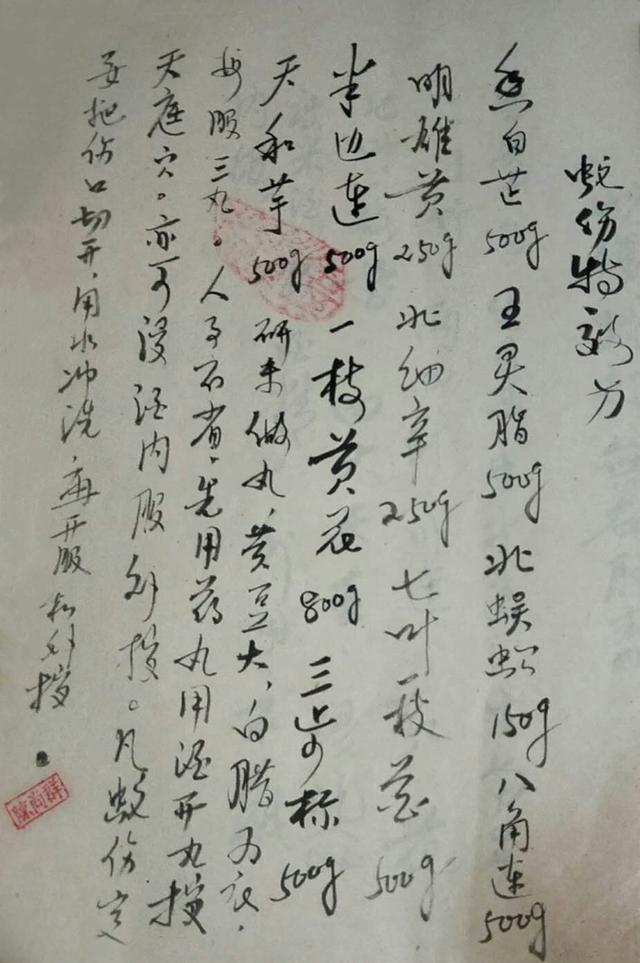 蛇伤特效方
香白芷500g 五灵脂500g 北蜈蚣150g 八角连500g
明雄黄250g 北细辛250g 七叶一枝花500g
半边连500g 一枝黄花800g 三步标500g
天和芋500g 研末做丸，黄豆大，白腊为衣，
每服三丸。人事不省，先用药丸用酒开丸搽
天庭穴。亦可浸酒内服外搽。凡蛇伤定
要把伤口切开，用水冲洗，再开服和外搽
陈尚群